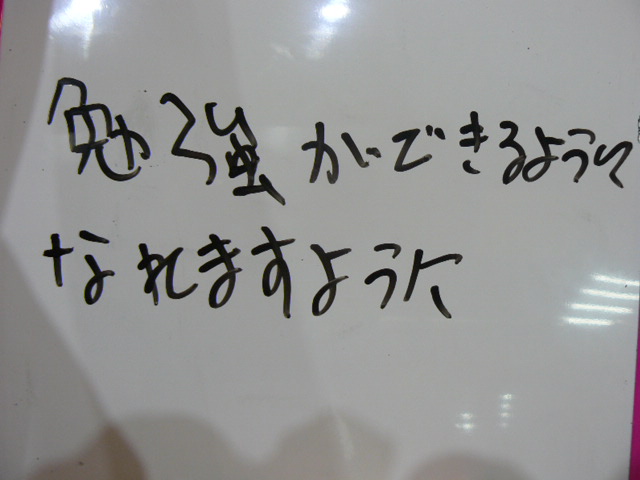 勉強ができるように
なれますように